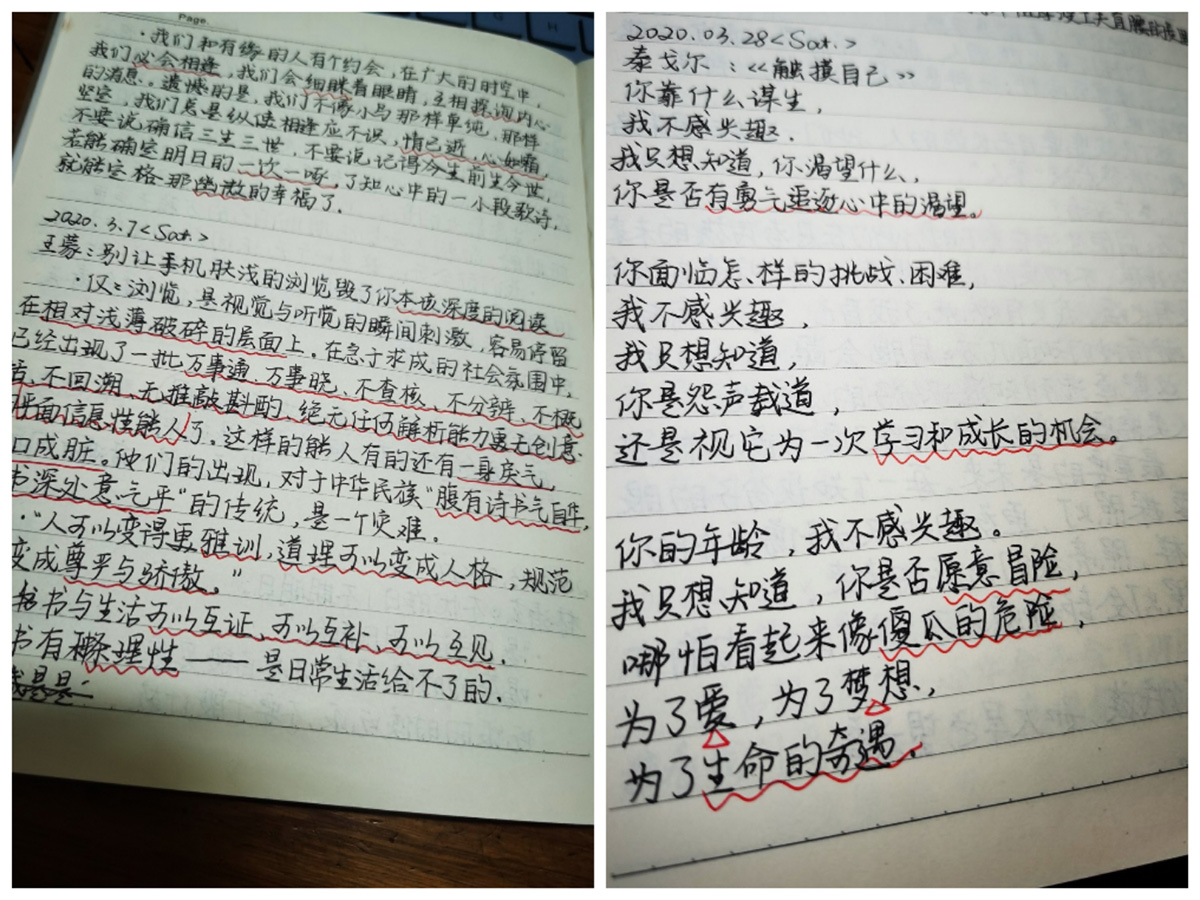 Page.
·我们和有缘的人有个约会，在广大的时空中，
我们必会相逢，我们会细眯着眼睛，互相探询内心
的消息。遗憾的是，我们不像小鸟那样单纯，那样
坚定，我们总是纵使相逢应不识，情已逝，心如霜，
不要说确信三生三世，不要说记得今生前生今世，
若能确定明日的一次一啄，了知心中的一小段歌诗，
就能定格那幽微的幸福了.
2020.3.7<Sat.>
王蒙：别让手机肤浅的浏览毁了你本也深度的阅读
·仅仅浏览，是视觉与听觉的瞬间刺激，容易停留
在相对浅薄破碎的层面上。在急于求成的社会氛围中，
已经出现了一批万事通、万事晓、不查核、不分辨、不概
不回溯、无推敲斟酌、绝无任何解析能力更无创意
平面信息性能人了。这样的能人有的还有一身戾气，
口成脏。他们的出现，对于中华民族“腹有诗书气自华，
书深处意气平”的传统，是一个灾难.
·“人可以变得更雅训，道理可以变成人格，规范
变成尊严与骄傲。”
书与生活可以互证、可以互补、可以互见.
书有种条理性——是日常生活给不了的.
2020.03.28<Sat.>
泰戈尔：《触摸自己》
你靠什么谋生，
我不感兴趣.
我只想知道，你渴望什么，
你是否有勇气追逐心中的渴望。
你面临怎样的挑战、困难，
我不感兴趣，
我只想知道，
你是怨声载道，
还是视它为一次学习和成长的机会。
你的年龄，我不感兴趣。
我只想知道，你是否愿意冒险，
哪怕看起来像傻瓜的危险，
为了爱，为了梦想，
为了生命的奇遇.